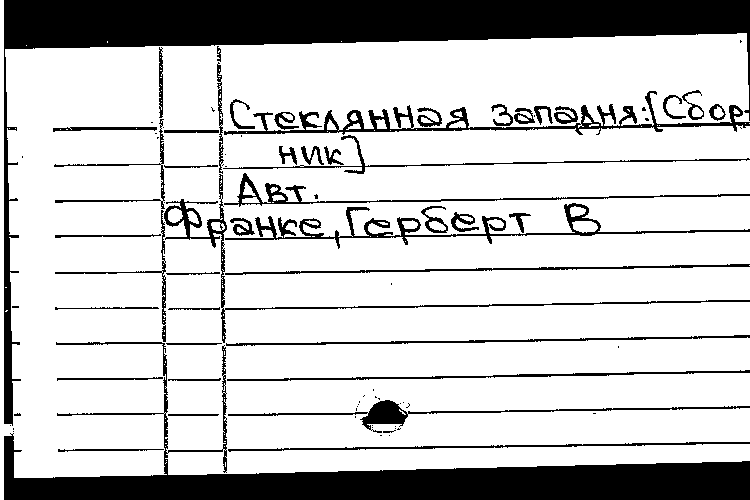 Стеклянная западня:[Сбор-
ник]
Авт.
Франке, Герберт В